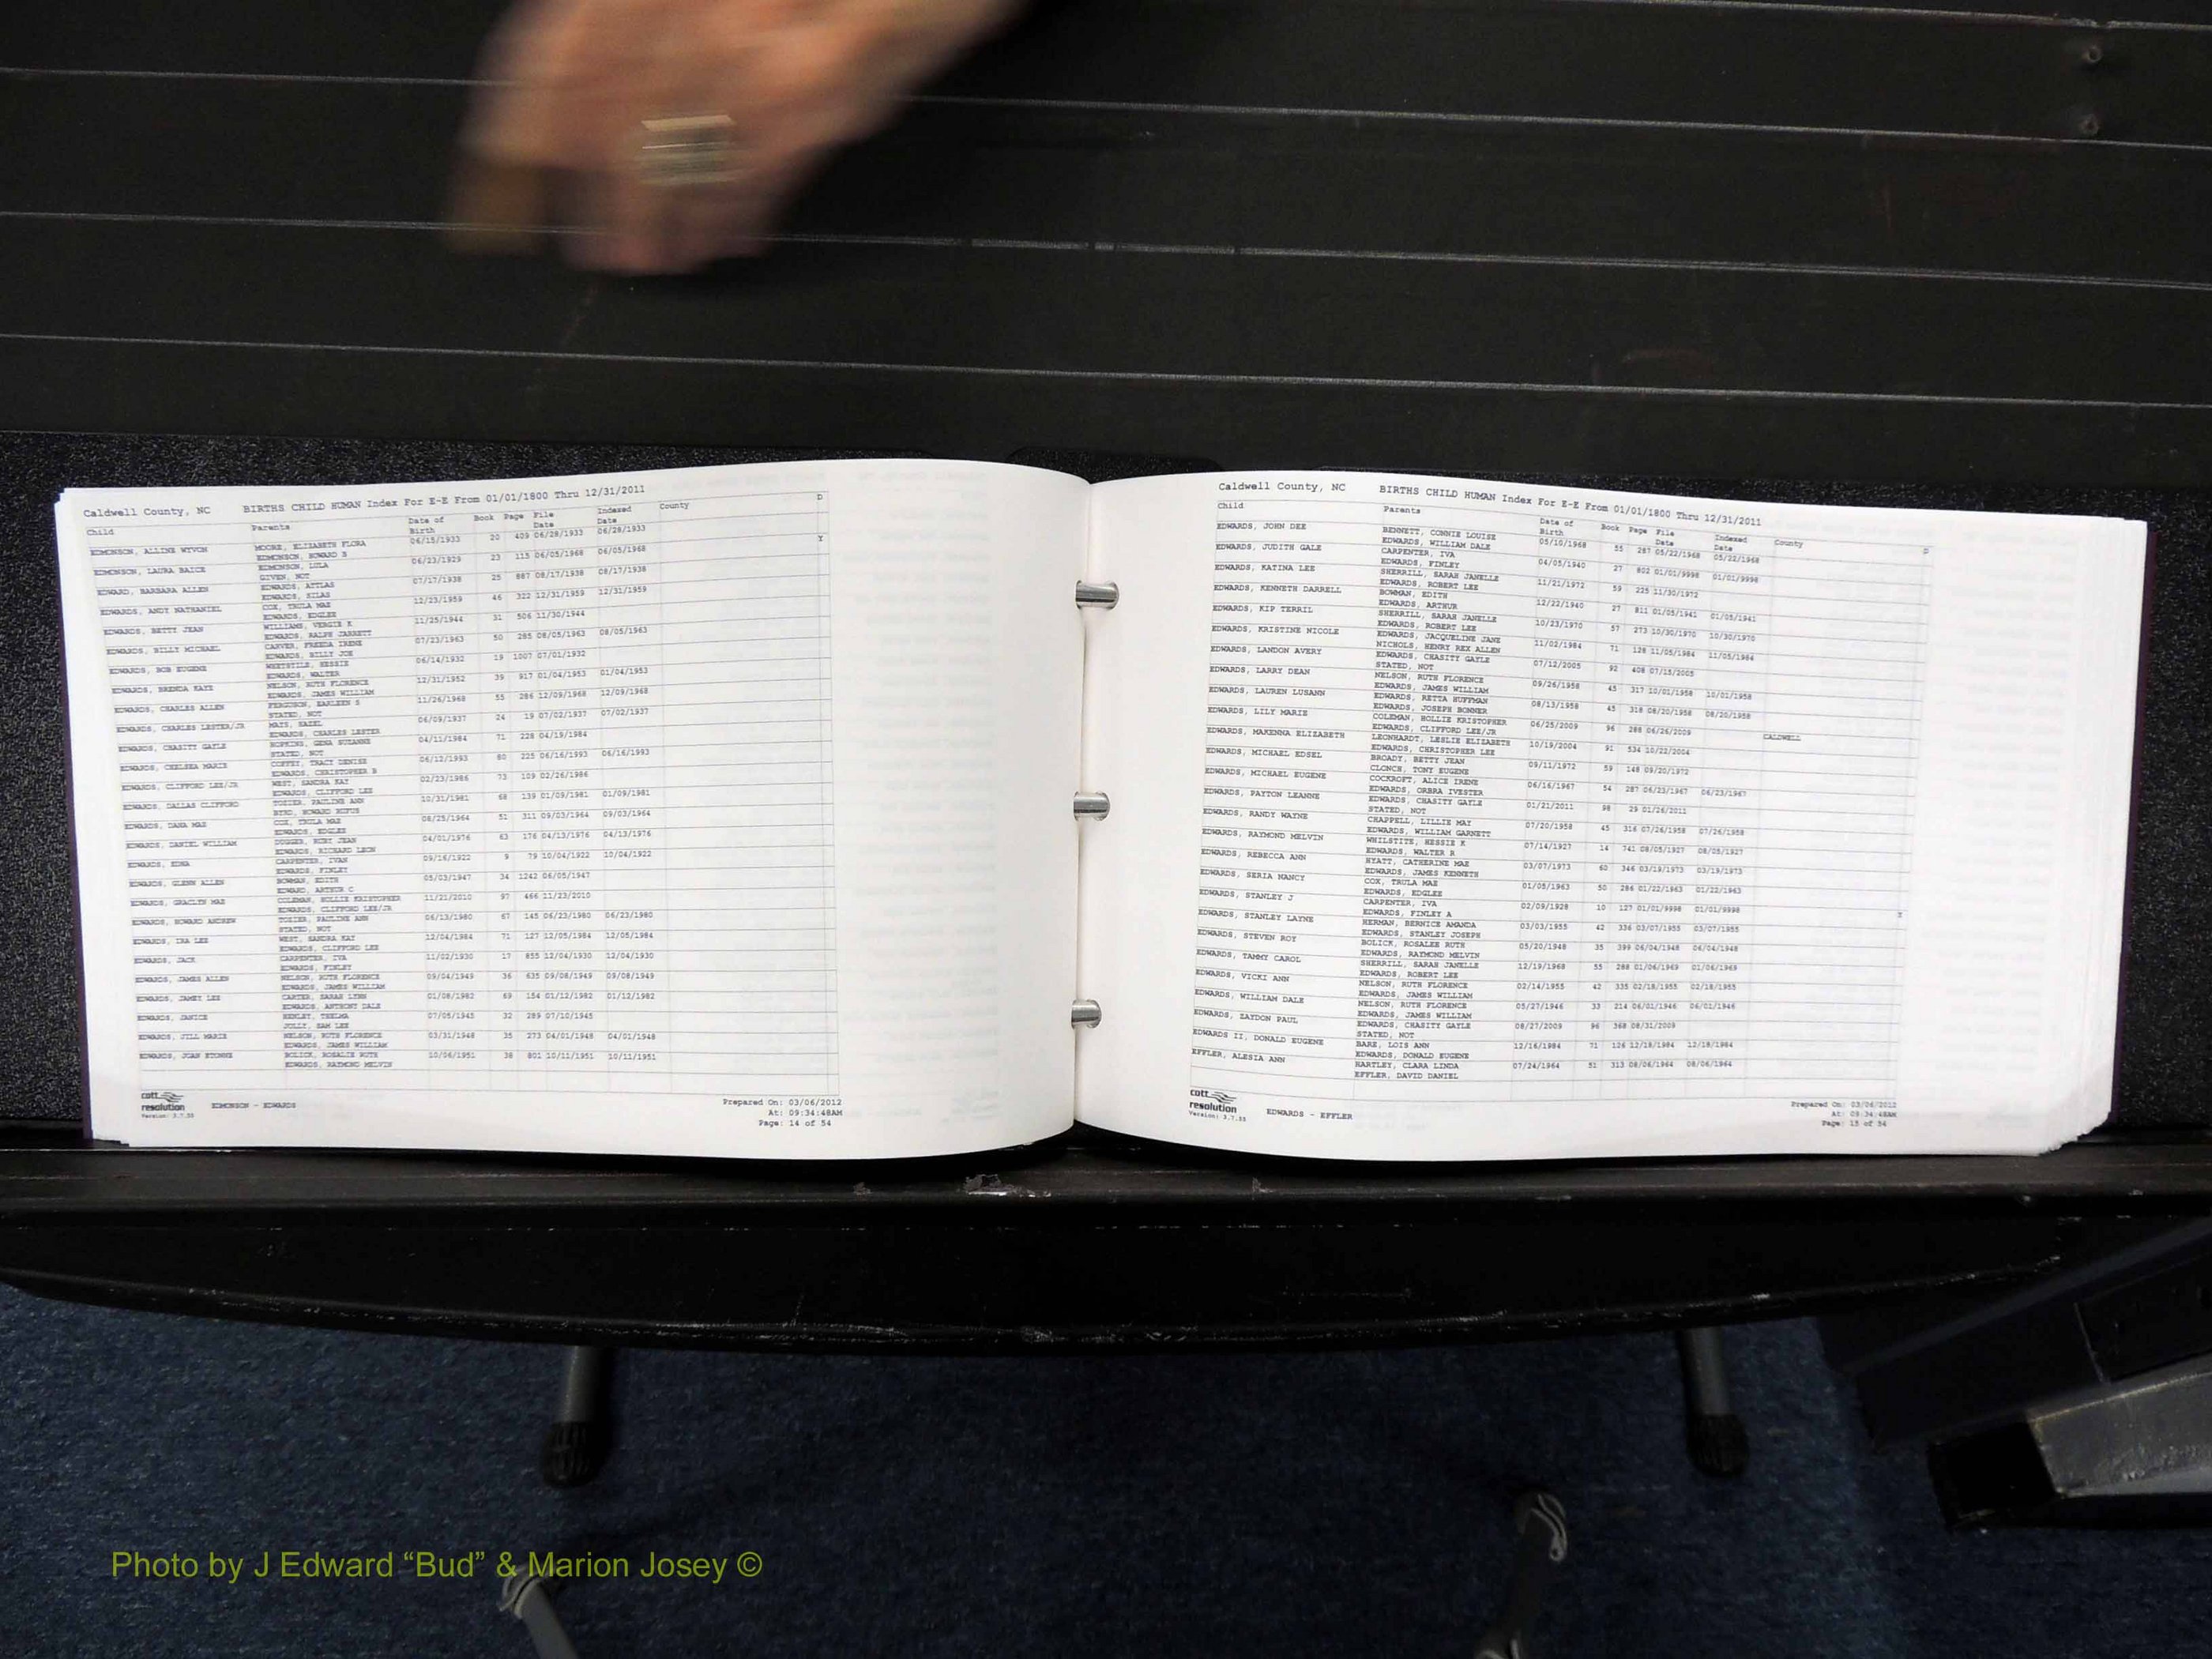 Caldwell County, NC BIRTHS CHILD HUMAN Index For E-E From 01/01/1800 Thru 12/31/2011
Child Parents Date of Birth Book Page File Date Indexed Date County D
EDMONSON, ALLINE WYVON MOORE, ELIZABETH FLORA 06/15/1933 20 409 06/28/1933 06/28/1933
EDMONSON, HOWARD B Y
EDMONSON, LAURA BAICE EDMONSON, LULA 06/23/1929 23 115 06/05/1968 06/05/1968
GIVEN, NOT
EDWARD, BARBARA ALLEN EDWARDS, ATTLAS 07/17/1938 25 887 08/17/1938 08/17/1938
EDWARDS, SILAS
EDWARDS, ANDY NATHANIEL COX, TRULA MAE 12/23/1959 46 322 12/31/1959 12/31/1959
EDWARDS, EDGLEE
EDWARDS, BETTY JEAN WILLIAMS, VERGIE K 11/25/1944 31 506 11/30/1944
EDWARDS, RALPH JARRETT
EDWARDS, BILLY MICHAEL CARVER, FREEDA IRENE 07/23/1963 50 285 08/05/1963 08/05/1963
EDWARDS, BILLY JOE
EDWARDS, BOB EUGENE WHETSTILE, HESSIE 06/14/1932 19 1007 07/01/1932
EDWARDS, WALTER
EDWARDS, BRENDA KAYE NELSON, RUTH FLORENCE 12/31/1952 39 917 01/04/1953 01/04/1953
EDWARDS, JAMES WILLIAM
EDWARDS, CHARLES ALLEN FERGUSON, EARLEEN S 11/26/1968 55 286 12/09/1968 12/09/1968
STATED, NOT
EDWARDS, CHARLES LESTER/JR MAYS, HAZEL 06/09/1937 24 19 07/02/1937 07/02/1937
EDWARDS, CHARLES LESTER
EDWARDS, CHASITY GAYLE HOPKINS, GENA SUZANNE 04/11/1984 71 228 04/19/1984
STATED, NOT
EDWARDS, CHELSEA MARIE COFFEY, TRACY DENISE 06/12/1993 80 225 06/16/1993 06/16/1993
EDWARDS, CHRISTOPHER B
EDWARDS, CLIFFORD LEE/JR WEST, SANDRA KAY 02/23/1986 73 109 02/26/1986
EDWARDS, CLIFFORD LEE
EDWARDS, DALLAS CLIFFORD TOSIER, PAULINE ANN 10/31/1981 68 139 01/09/1981 01/09/1981
BYRD, HOWARD RUFUS
EDWARDS, DANA MAE COX, TRULA MAE 08/25/1964 51 311 09/03/1964 09/03/1964
EDWARDS, EDGLEE
EDWARDS, DANIEL WILLIAM DUGGER, RUBY JEAN 04/01/1976 63 176 04/13/1976 04/13/1976
EDWARDS, RICHARD LEON
EDWARDS, EDNA CARPENTER, IVAN 09/16/1922 9 79 10/04/1922 10/04/1922
EDWARDS, FINLEY
EDWARDS, GLENN ALLEN BOWMAN, EDITH 05/03/1947 34 1242 06/05/1947
EDWARD, ARTHUR C
EDWARDS, GRACLYN MAE COLEMAN, HOLLIE KRISTOPHER 11/21/2010 97 466 11/23/2010
EDWARDS, CLIFFORD LEE/JR
EDWARDS, HOWARD ANDREW TOSIER, PAULINE ANN 06/13/1980 67 145 06/23/1980 06/23/1980
STATED, NOT
EDWARDS, IRA LEE WEST, SANDRA KAY 12/04/1984 71 127 12/05/1984 12/05/1984
EDWARDS, CLIFFORD LEE
EDWARDS, JACK CARPENTER, IVA 11/02/1930 17 855 12/04/1930 12/04/1930
EDWARDS, FINLEY
EDWARDS, JAMES ALLEN NELSON, RUTH FLORENCE 09/04/1949 36 635 09/08/1949 09/08/1949
EDWARDS, JAMES WILLIAM
EDWARDS, JAMEY LEE CARTER, SARAH LYNN 01/08/1982 69 154 01/12/1982 01/12/1982
EDWARDS, ANTHONY DALE
EDWARDS, JANICE HENLEY, THELMA 07/05/1945 32 289 07/10/1945
JOLLY, SAM LEE
EDWARDS, JILL MARIE NELSON, RUTH FLORENCE 03/31/1948 35 273 04/01/1948 04/01/1948
EDWARDS, JAMES WILLIAM
EDWARDS, JOAN ETONNE BOLICK, ROSALIE RUTH 10/06/1951 38 801 10/11/1951 10/11/1951
EDWARDS, RAYMOND MELVIN
cott resolution Version: 3.7.53 EDMONSON - EDWARDS
Prepared On: 03/06/2012
At: 09:34:48AM
Page: 14 of 54
Caldwell County, NC BIRTHS CHILD HUMAN Index For E-E From 01/01/1800 Thru 12/31/2011
Child Parents Date of Birth Book Page File Date Indexed Date County D
EDWARDS, JOHN DEE BENNETT, CONNIE LOUISE 05/10/1968 55 287 05/22/1968 05/22/1968
EDWARDS, WILLIAM DALE
EDWARDS, JUDITH GALE CARPENTER, IVA 04/05/1940 27 802 01/01/9998 01/01/9998
EDWARDS, FINLEY
EDWARDS, KATINA LEE SHERRILL, SARAH JANELLE 11/21/1972 59 225 11/30/1972
EDWARDS, ROBERT LEE
EDWARDS, KENNETH DARRELL BOWMAN, EDITH 12/22/1940 27 811 01/05/1941 01/05/1941
EDWARDS, ARTHUR
EDWARDS, KIP TERRIL SHERRILL, SARAH JANELLE 10/23/1970 57 273 10/30/1970 10/30/1970
EDWARDS, ROBERT LEE
EDWARDS, KRISTINE NICOLE EDWARDS, JACQUELINE JANE 11/02/1984 71 128 11/05/1984 11/05/1984
NICHOLS, HENRY REX ALLEN
EDWARDS, LANDON AVERY EDWARDS, CHASITY GAYLE 07/12/2005 92 408 07/15/2005
STATED, NOT
EDWARDS, LARRY DEAN NELSON, RUTH FLORENCE 09/26/1958 45 317 10/01/1958 10/01/1958
EDWARDS, JAMES WILLIAM
EDWARDS, LAUREN LUSANN EDWARDS, RETTA HUFFMAN 08/13/1958 45 318 08/20/1958 08/20/1958
EDWARDS, JOSEPH BONNER
EDWARDS, LILY MARIE COLEMAN, HOLLIE KRISTOPHER 06/25/2009 96 288 06/26/2009 CALDWELL
EDWARDS, CLIFFORD LEE/JR
EDWARDS, MAKENNA ELIZABETH LEONHARDT, LESLIE ELIZABETH 10/19/2004 91 534 10/22/2004
EDWARDS, CHRISTOPHER LEE
EDWARDS, MICHAEL EDSEL BROADY, BETTY JEAN 09/11/1972 59 148 09/20/1972
CLONCH, TONY EUGENE
EDWARDS, MICHAEL EUGENE COCKROFT, ALICE IRENE 06/16/1967 54 287 06/23/1967 06/23/1967
EDWARDS, ORBRA IVESTER
EDWARDS, PAYTON LEANNE EDWARDS, CHASITY GAYLE 01/21/2011 98 29 01/26/2011
STATED, NOT
EDWARDS, RANDY WAYNE CHAPPELL, LILLIE MAY 07/20/1958 45 316 07/26/1958 07/26/1958
EDWARDS, WILLIAM GARNETT
EDWARDS, RAYMOND MELVIN WHILSTITE, HESSIE K 07/14/1927 14 741 08/05/1927 08/05/1927
EDWARDS, WALTER R
EDWARDS, REBECCA ANN HYATT, CATHERINE MAE 03/07/1973 60 346 03/19/1973 03/19/1973
EDWARDS, JAMES KENNETH
EDWARDS, SERIA NANCY COX, TRULA MAE 01/05/1963 50 286 01/22/1963 01/22/1963
EDWARDS, EDGLEE
EDWARDS, STANLEY J CARPENTER, IVA 02/09/1928 10 127 01/01/9998 01/01/9998
EDWARDS, FINLEY A
EDWARDS, STANLEY LAYNE HERMAN, BERNICE AMANDA 03/03/1955 42 336 03/07/1955 03/07/1955
EDWARDS, STANLEY JOSEPH
EDWARDS, STEVEN ROY BOLICK, ROSALEE RUTH 05/20/1948 35 399 06/04/1948 06/04/1948
EDWARDS, RAYMOND MELVIN
EDWARDS, TAMMY CAROL SHERRILL, SARAH JANELLE 12/19/1968 55 288 01/06/1969 01/06/1969
EDWARDS, ROBERT LEE
EDWARDS, VICKI ANN NELSON, RUTH FLORENCE 02/14/1955 42 335 02/18/1955 02/18/1955
EDWARDS, JAMES WILLIAM
EDWARDS, WILLIAM DALE NELSON, RUTH FLORENCE 05/27/1946 33 214 06/01/1946 06/01/1946
EDWARDS, JAMES WILLIAM
EDWARDS, ZAYDON PAUL EDWARDS, CHASITY GAYLE 08/27/2009 96 368 08/31/2009
STATED, NOT
EDWARDS II, DONALD EUGENE BARE, LOIS ANN 12/16/1984 71 126 12/18/1984 12/18/1984
EDWARDS, DONALD EUGENE
EFFLER, ALESIA ANN HARTLEY, CLARA LINDA 07/24/1964 51 313 08/06/1964 08/06/1964
EFFLER, DAVID DANIEL
cott resolution Version: 3.7.53 EDWARDS - EFFLER
Prepared On: 03/06/2012
At: 09:34:48AM
Page: 15 of 54
Photo by J Edward “Bud” & Marion Josey ©